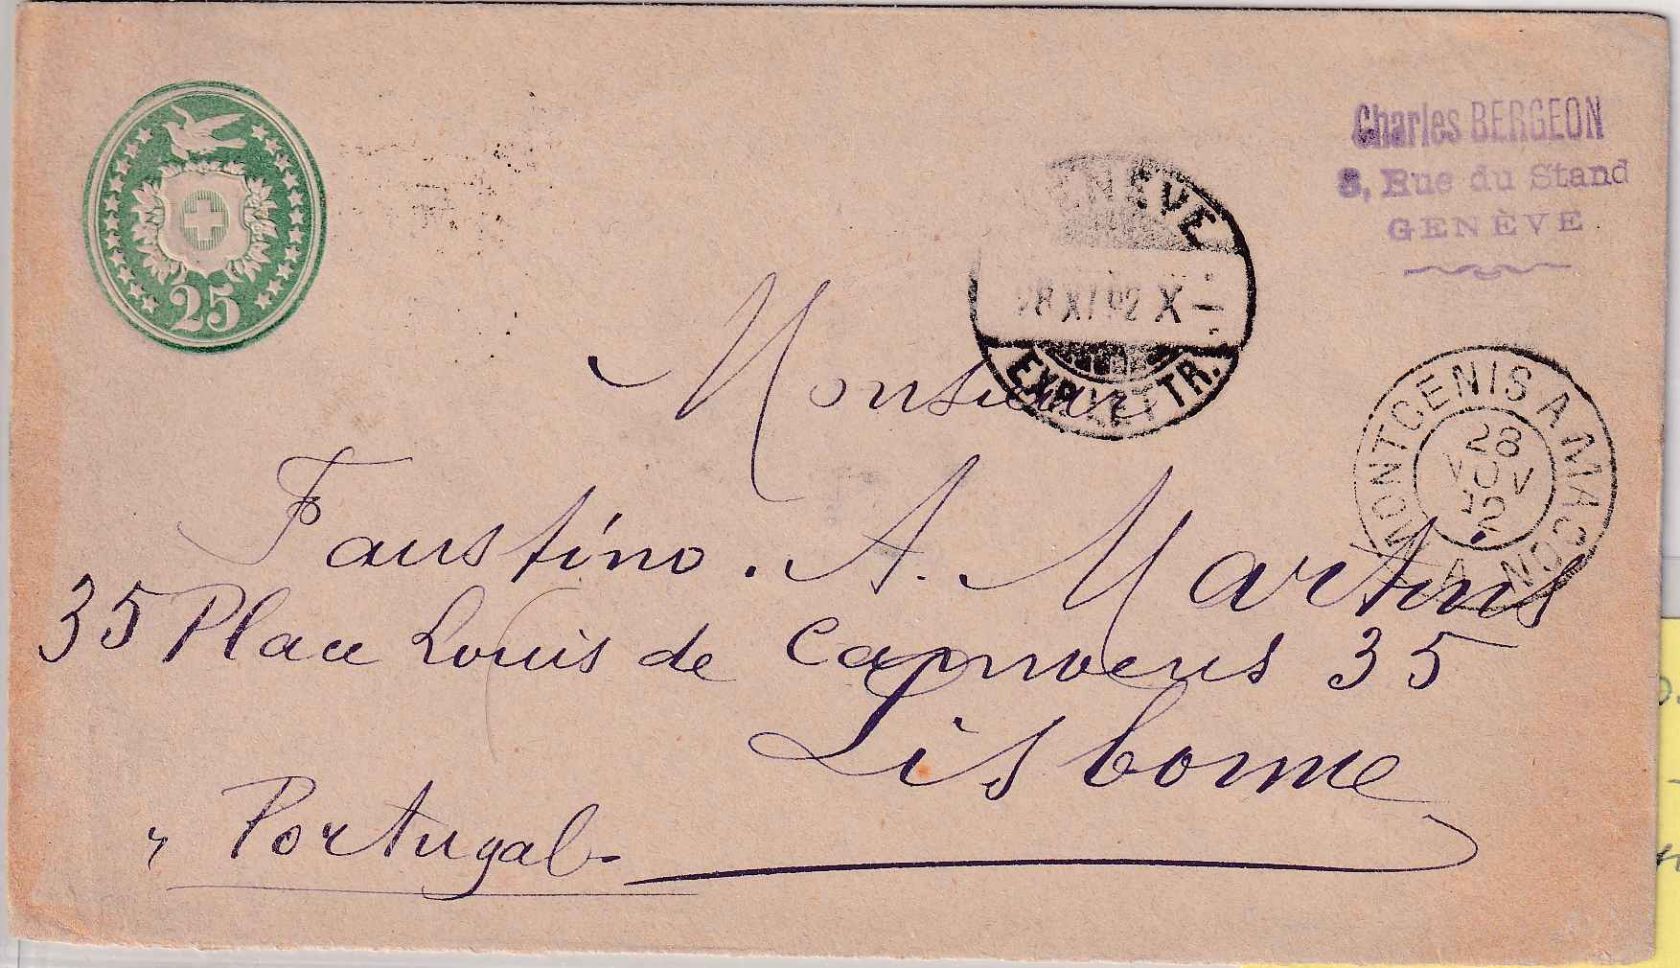 25
Charles BERGEON
8, Rue du Stand
GENÈVE
GENEVE
28 XI 92 X
EXP. LETTR.
MONTCENIS A MACON
28
NOV
92
Monsieur
Faustino. A. Martins
35 Place Louis de Camoens 35
Lisbonne
Portugal